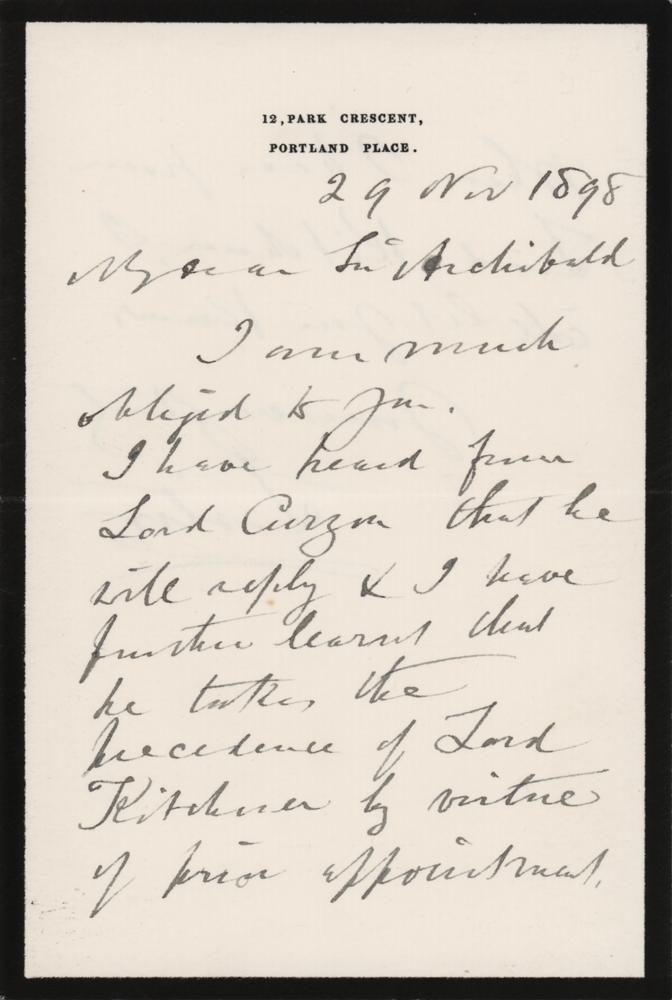 12, PARK CRESCENT,
PORTLAND PLACE.
29 Nov 1898
My dear Sir Archibald
I am much
obliged to you.
I have heard from
Lord Curzon that he
will reply & I have
further learnt that
he takes the
precedence of Lord
Kitchener by virtue
of prior appointment.